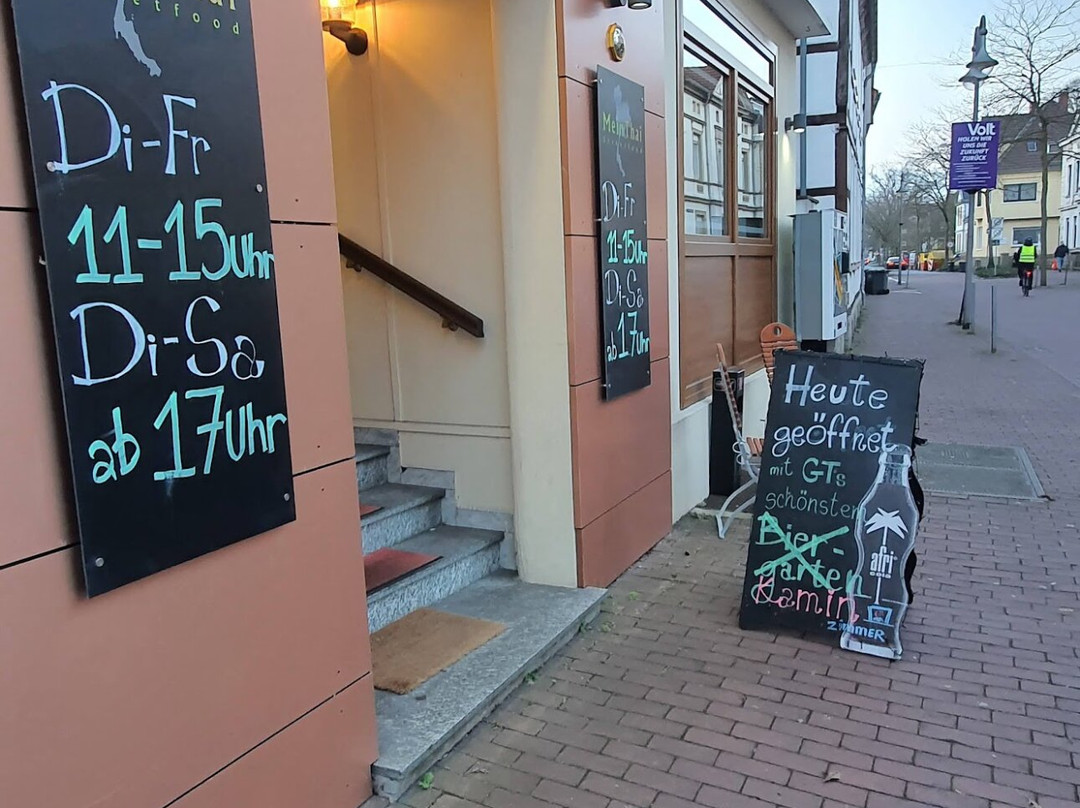 etfood
Di-Fr
11-15uhr
Di-Sa
ab 17Uhr
MeinThai
Di-Fr
11-15uhr
Di-Sa
ab 17Uhr
Heute
geöffnet
mit GTs
schönsten
Bier-
garten
Kamin
ZIMMER
afri
cola
Volt
HOLEN WIR
UNS DIE
ZUKUNFT
ZURÜCK